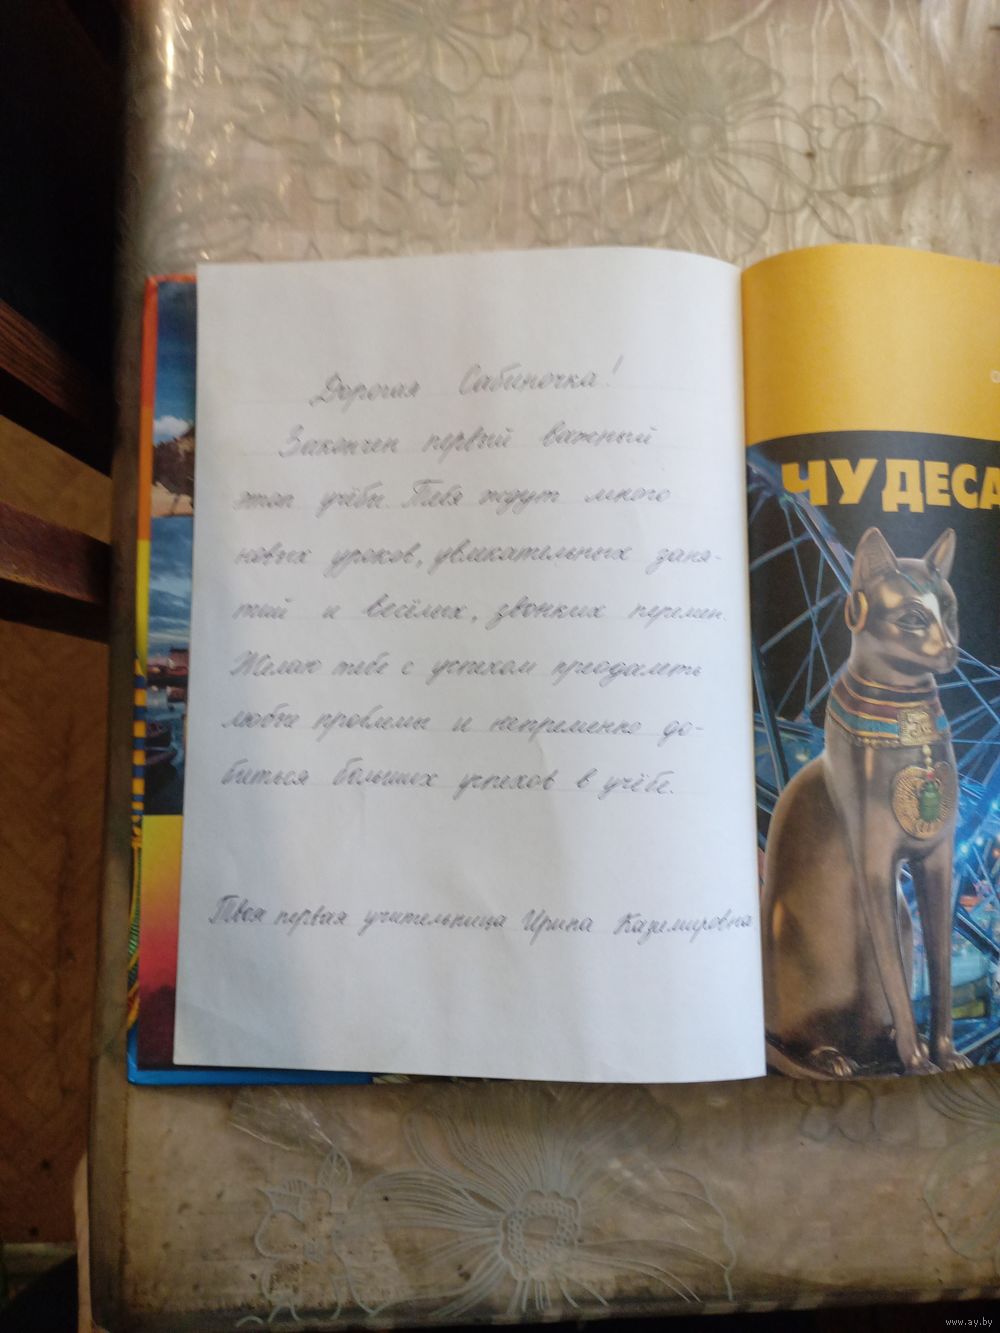 Дорогая Сабиночка!
Закончен первый важный
этап учёбы. Тебя ждут много
новых уроков, увлекательных заня-
тий и весёлых, звонких перемен.
Желаю тебе с успехом преодолеть
любые проблемы и непременно до-
биться больших успехов в учёбе.
Твоя первая учительница Ирина Каземировна
ЧУДЕСА
www.ay.by